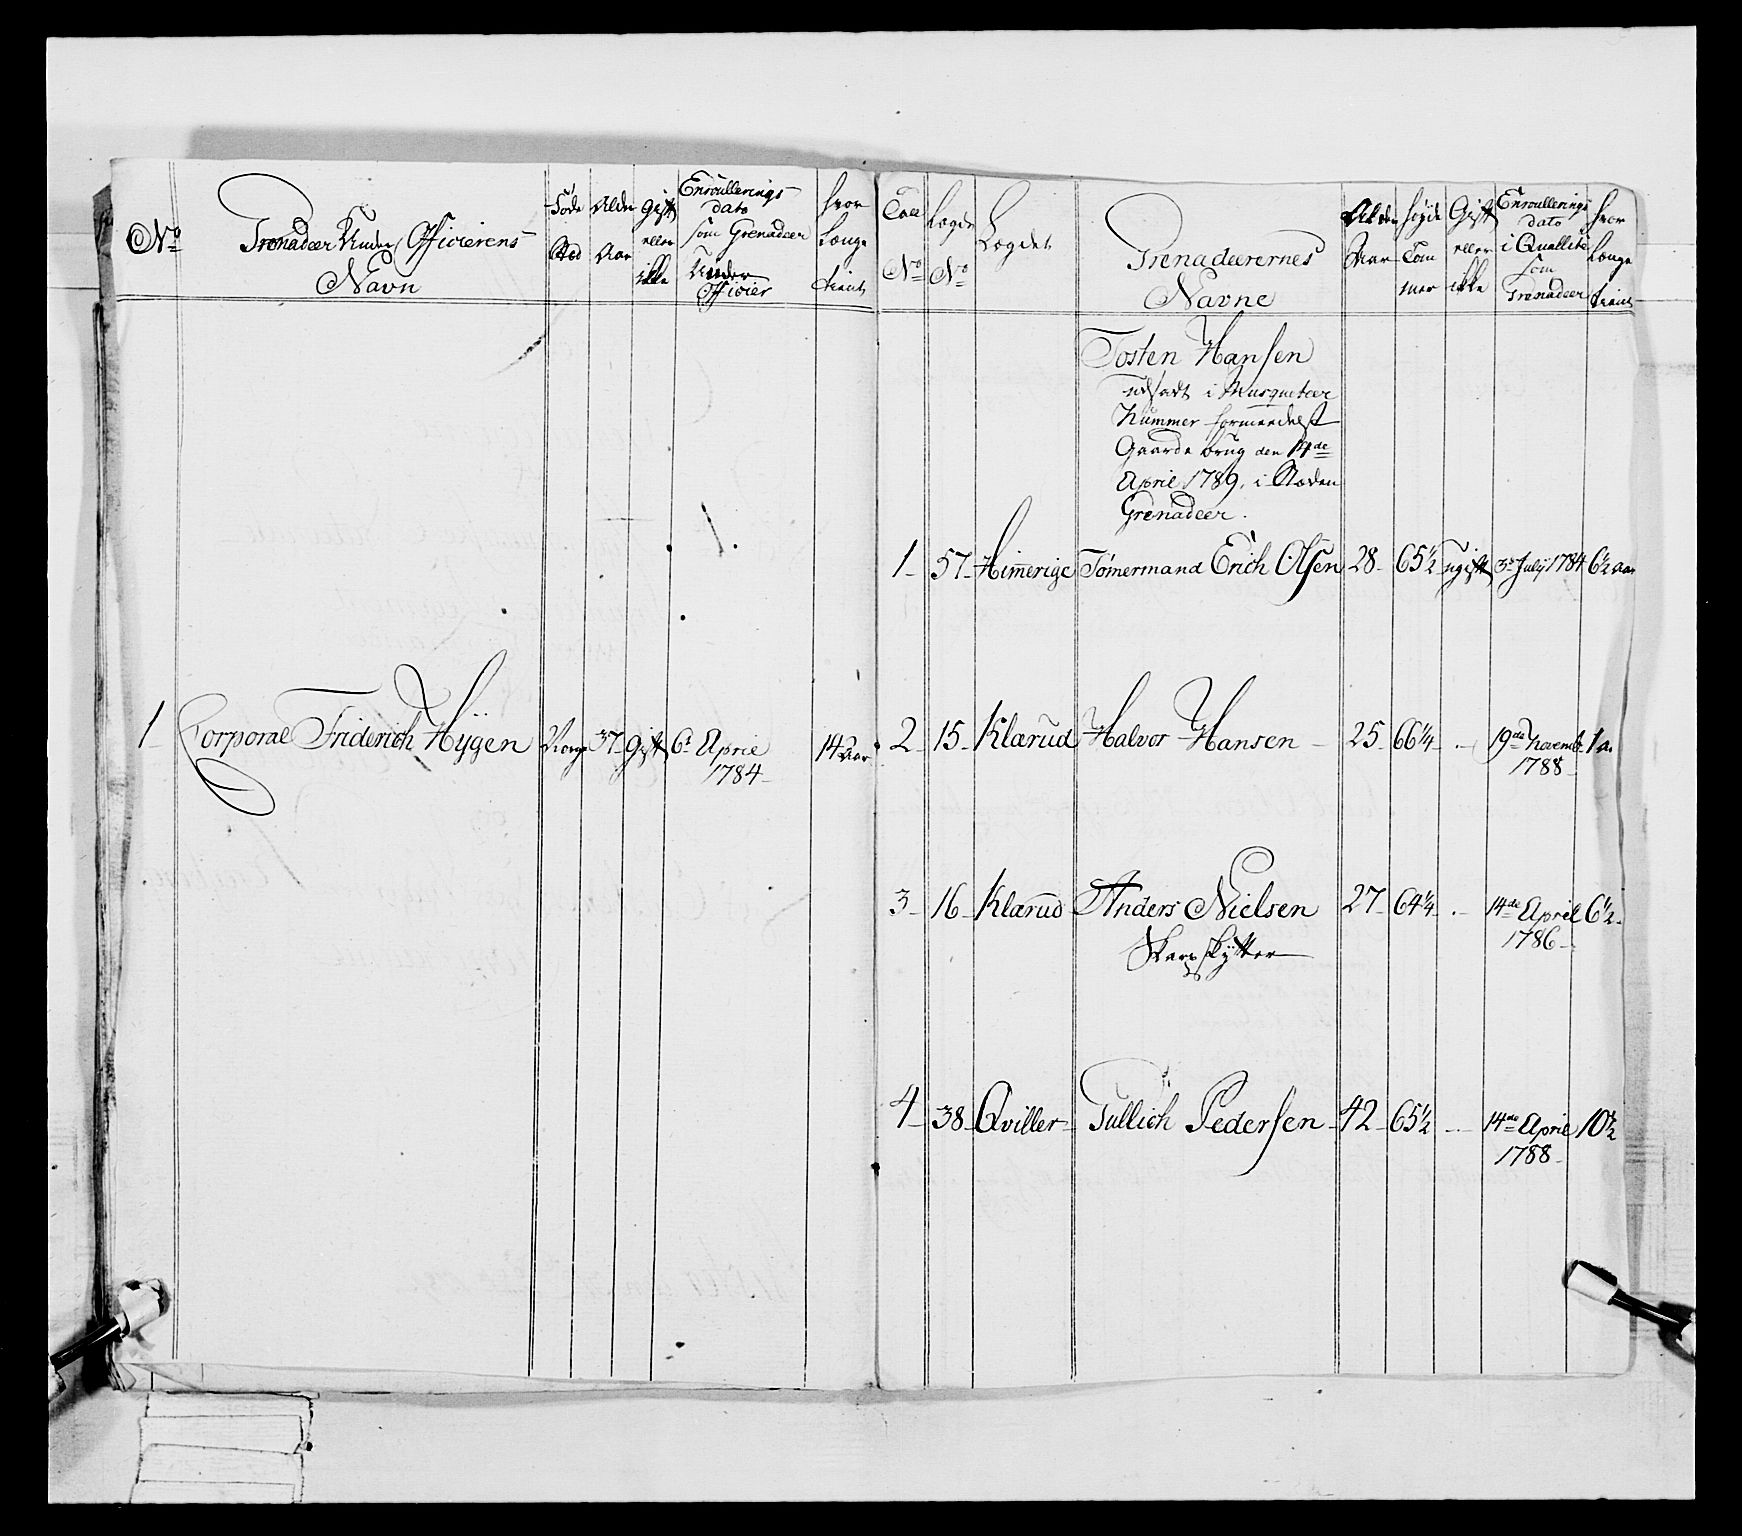 No
Grenadeer Under Officierens
Navn
Føde
Sted
Alder
Aar
Gift
eller
ikke
Enroullerings
dato
som Grenadeer
Under
Officier
hvor
Længe
tient
1
Corporal Friderich Hÿgen
Norge
37
Gift
6t April
1784
14 Aar
No
Lægde
No
Lægdet
Grenadeerernes
Navne
Alder
Aar
Høyde
Tom
mer
Gift
eller
ikke
Enroullerings
dato
i Qualité
som
Grenadeer
hvor
Længe
tient
Tosten Hansen
udsadt i Musqueteer
Nummer formedelst
Gaards brug den 14de
April 1789, i Stæden
Grenadeer.
1 57 Himerige Tømermand Erich Olsen 28 65½ ugift 3de Julÿ 1784 6½ aar
2 15 Klærud Halvor Hansen 25 66¼ - 19de Novemb 1 a
1788
3 16 Klærud Anders Nielsen 27 64¼ - 14de April 6½
Skarpskÿtter
1786
4 38 Qviller Tullich Pedersen 42 65½ - 14de April 10½
1788